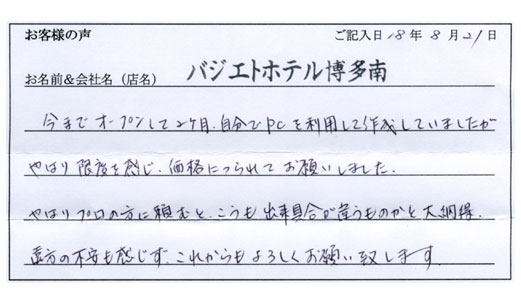 お客様の声 ご記入日 18年 8月 21日
お名前&会社名（店名） バジエトホテル博多南
今までオープンして2ヶ月、自分でPCを利用して作成していましたが
やはり限度を感じ、価格につられてお願いしました。
やはりプロの方に頼むと、こうも出来具合が違うものかと大納得。
遠方の不安も感じず、これからもよろしくお願い致します